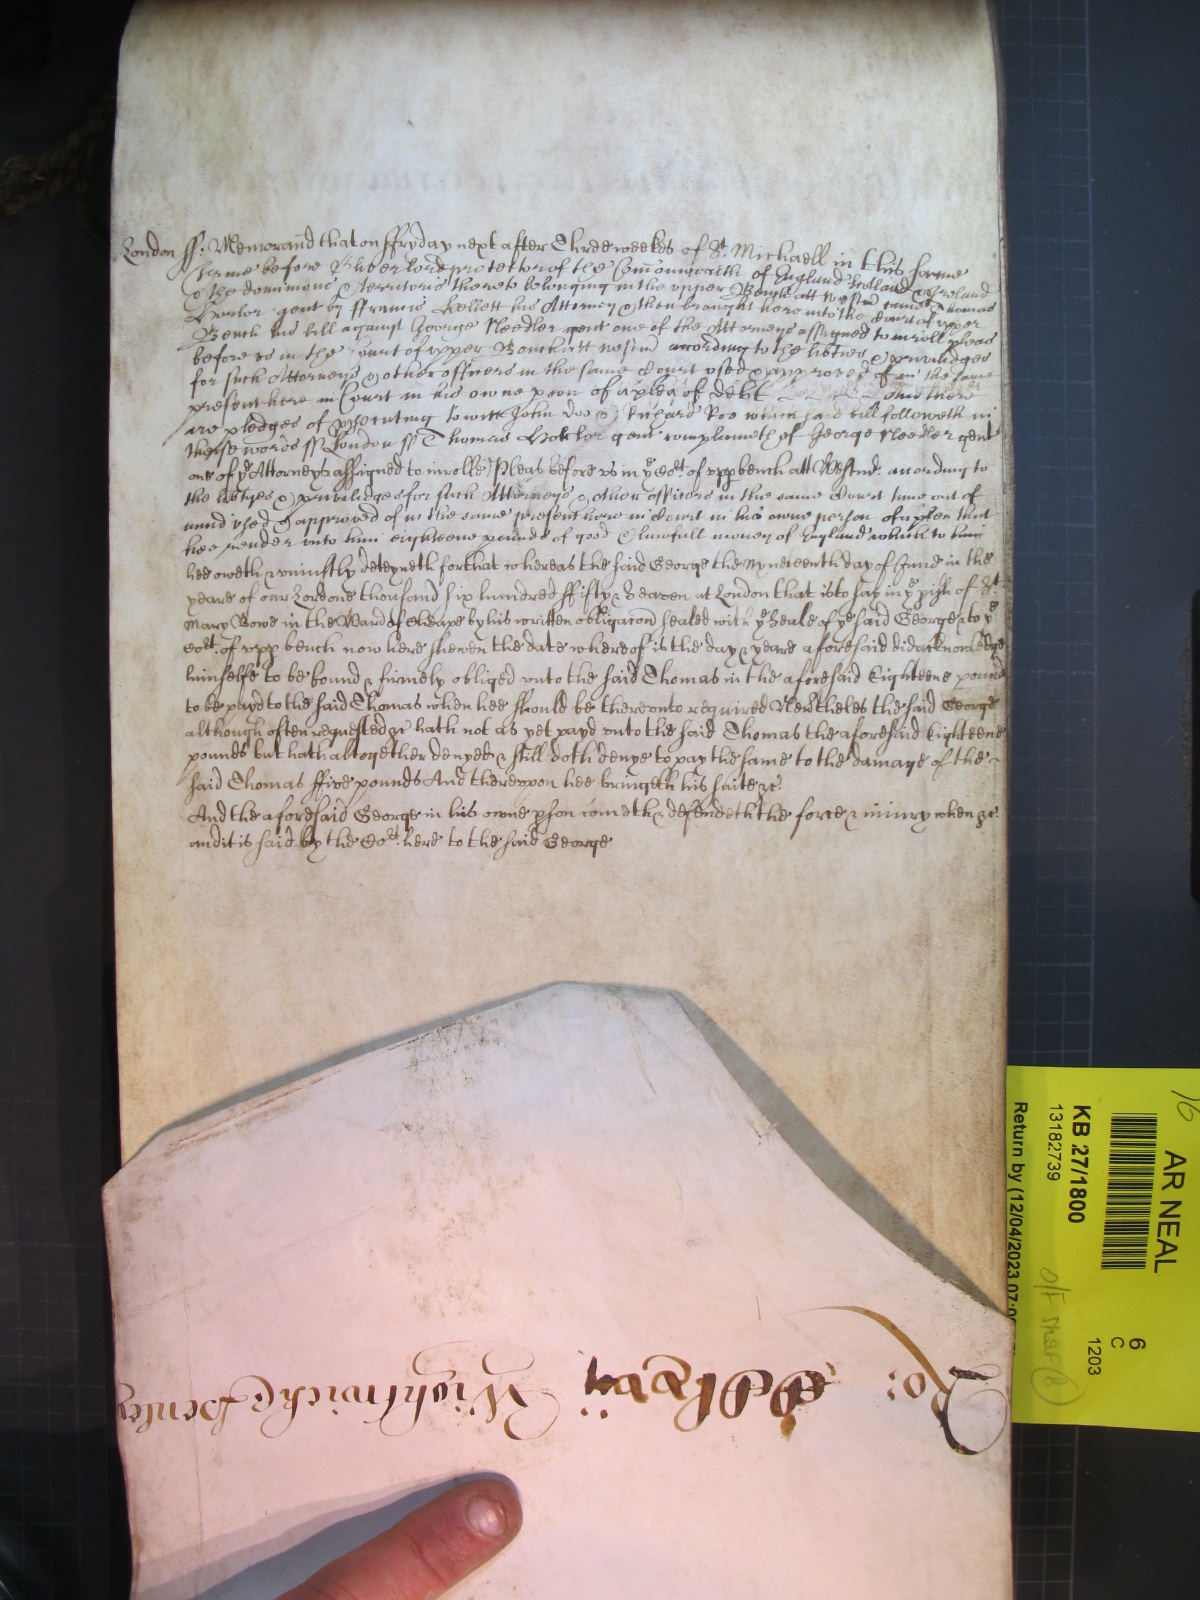 London ss: Memorand that on ffryday next after Three weekes of St. Michaell in this same
Terme before Oliver lord protector of the Comonwealth of England Scotland & Ireland
& the dominions & territories thereto belonging in the upper Bench att Westm came Thomas
gent by ffrancis Kellett his Attorney & then brought here into the Court of upper
Bench his bill against George Needler gent one of the Attorneys assigned to inroll pleas
before us in the Court of upper Bench att Westm according to the libties & priviledges
for such Attorneys & other officers in the same Court used & approved of in the same
present here in Court in his owne pson of a plea of debt And there
are pledges of psecuting to witt John Doo & Richard Roo which said bill followeth in
these words ss London ss Thomas gent complaineth of George Needler gent
one of ye Attorneys assigned to inrolle Pleas before us in ye Cort of upp bench att Westm: according to
the libtyes & priviledges for such Attorneys & other officers in the same Court time out of
mind used & approved of in the same present here in Court in his owne person of a plea that
hee render unto him eighteene pounds of good & lawfull money of England which to him
hee oweth & uniustly deteyneth for that whereas the said George the Nyneteenth day of June in the
yeare of our Lord one thousand six hundred ffifty & Seaven at London that is to say in ye pish of St.
Mary Bowe in the Ward of Cheape by his written obligacon sealed with ye Seale of ye said George & to ye
Cort. of upp bench now here shewen the date whereof is the day & yeare aforesaid did acknowledge
himselfe to be bound & firmely obliged unto the said Thomas in the aforesaid Eighteene pounds
to be payd to the said Thomas when hee should be thereunto required Nevertheles the said George
although often requested &c hath not as yet payd unto the said Thomas the aforesaid Eighteene
pounds but hath altogether denyed & still doth denye to pay the same to the damage of the
said Thomas ffive pounds And thereupon hee bringeth his suite &c.
And the aforesaid George in his owne pson cometh & defendeth the force & iniury when &c.
and it is said by the Cort. here to the said George
Ro:
Wightwicke
AR NEAL
KB 27/1800
13182739
Return by (12/04/2023 07:0
6
C
1203
16